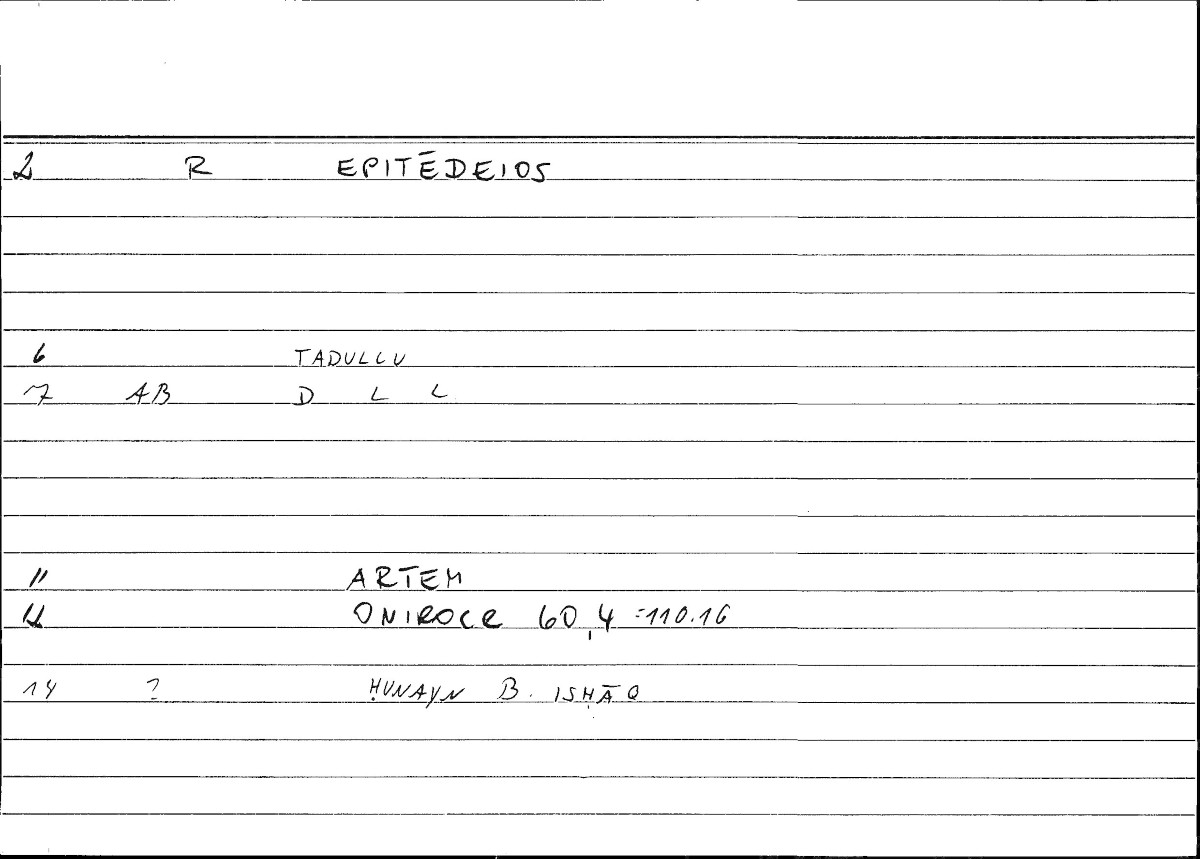 2 R EPITĒDEIOS
6 TADULLU
7 AB D L L
11 ARTEM
12 ONIROCR 60,4 =110.16
14 ? ḤUNAYN B. ISḤĀQ